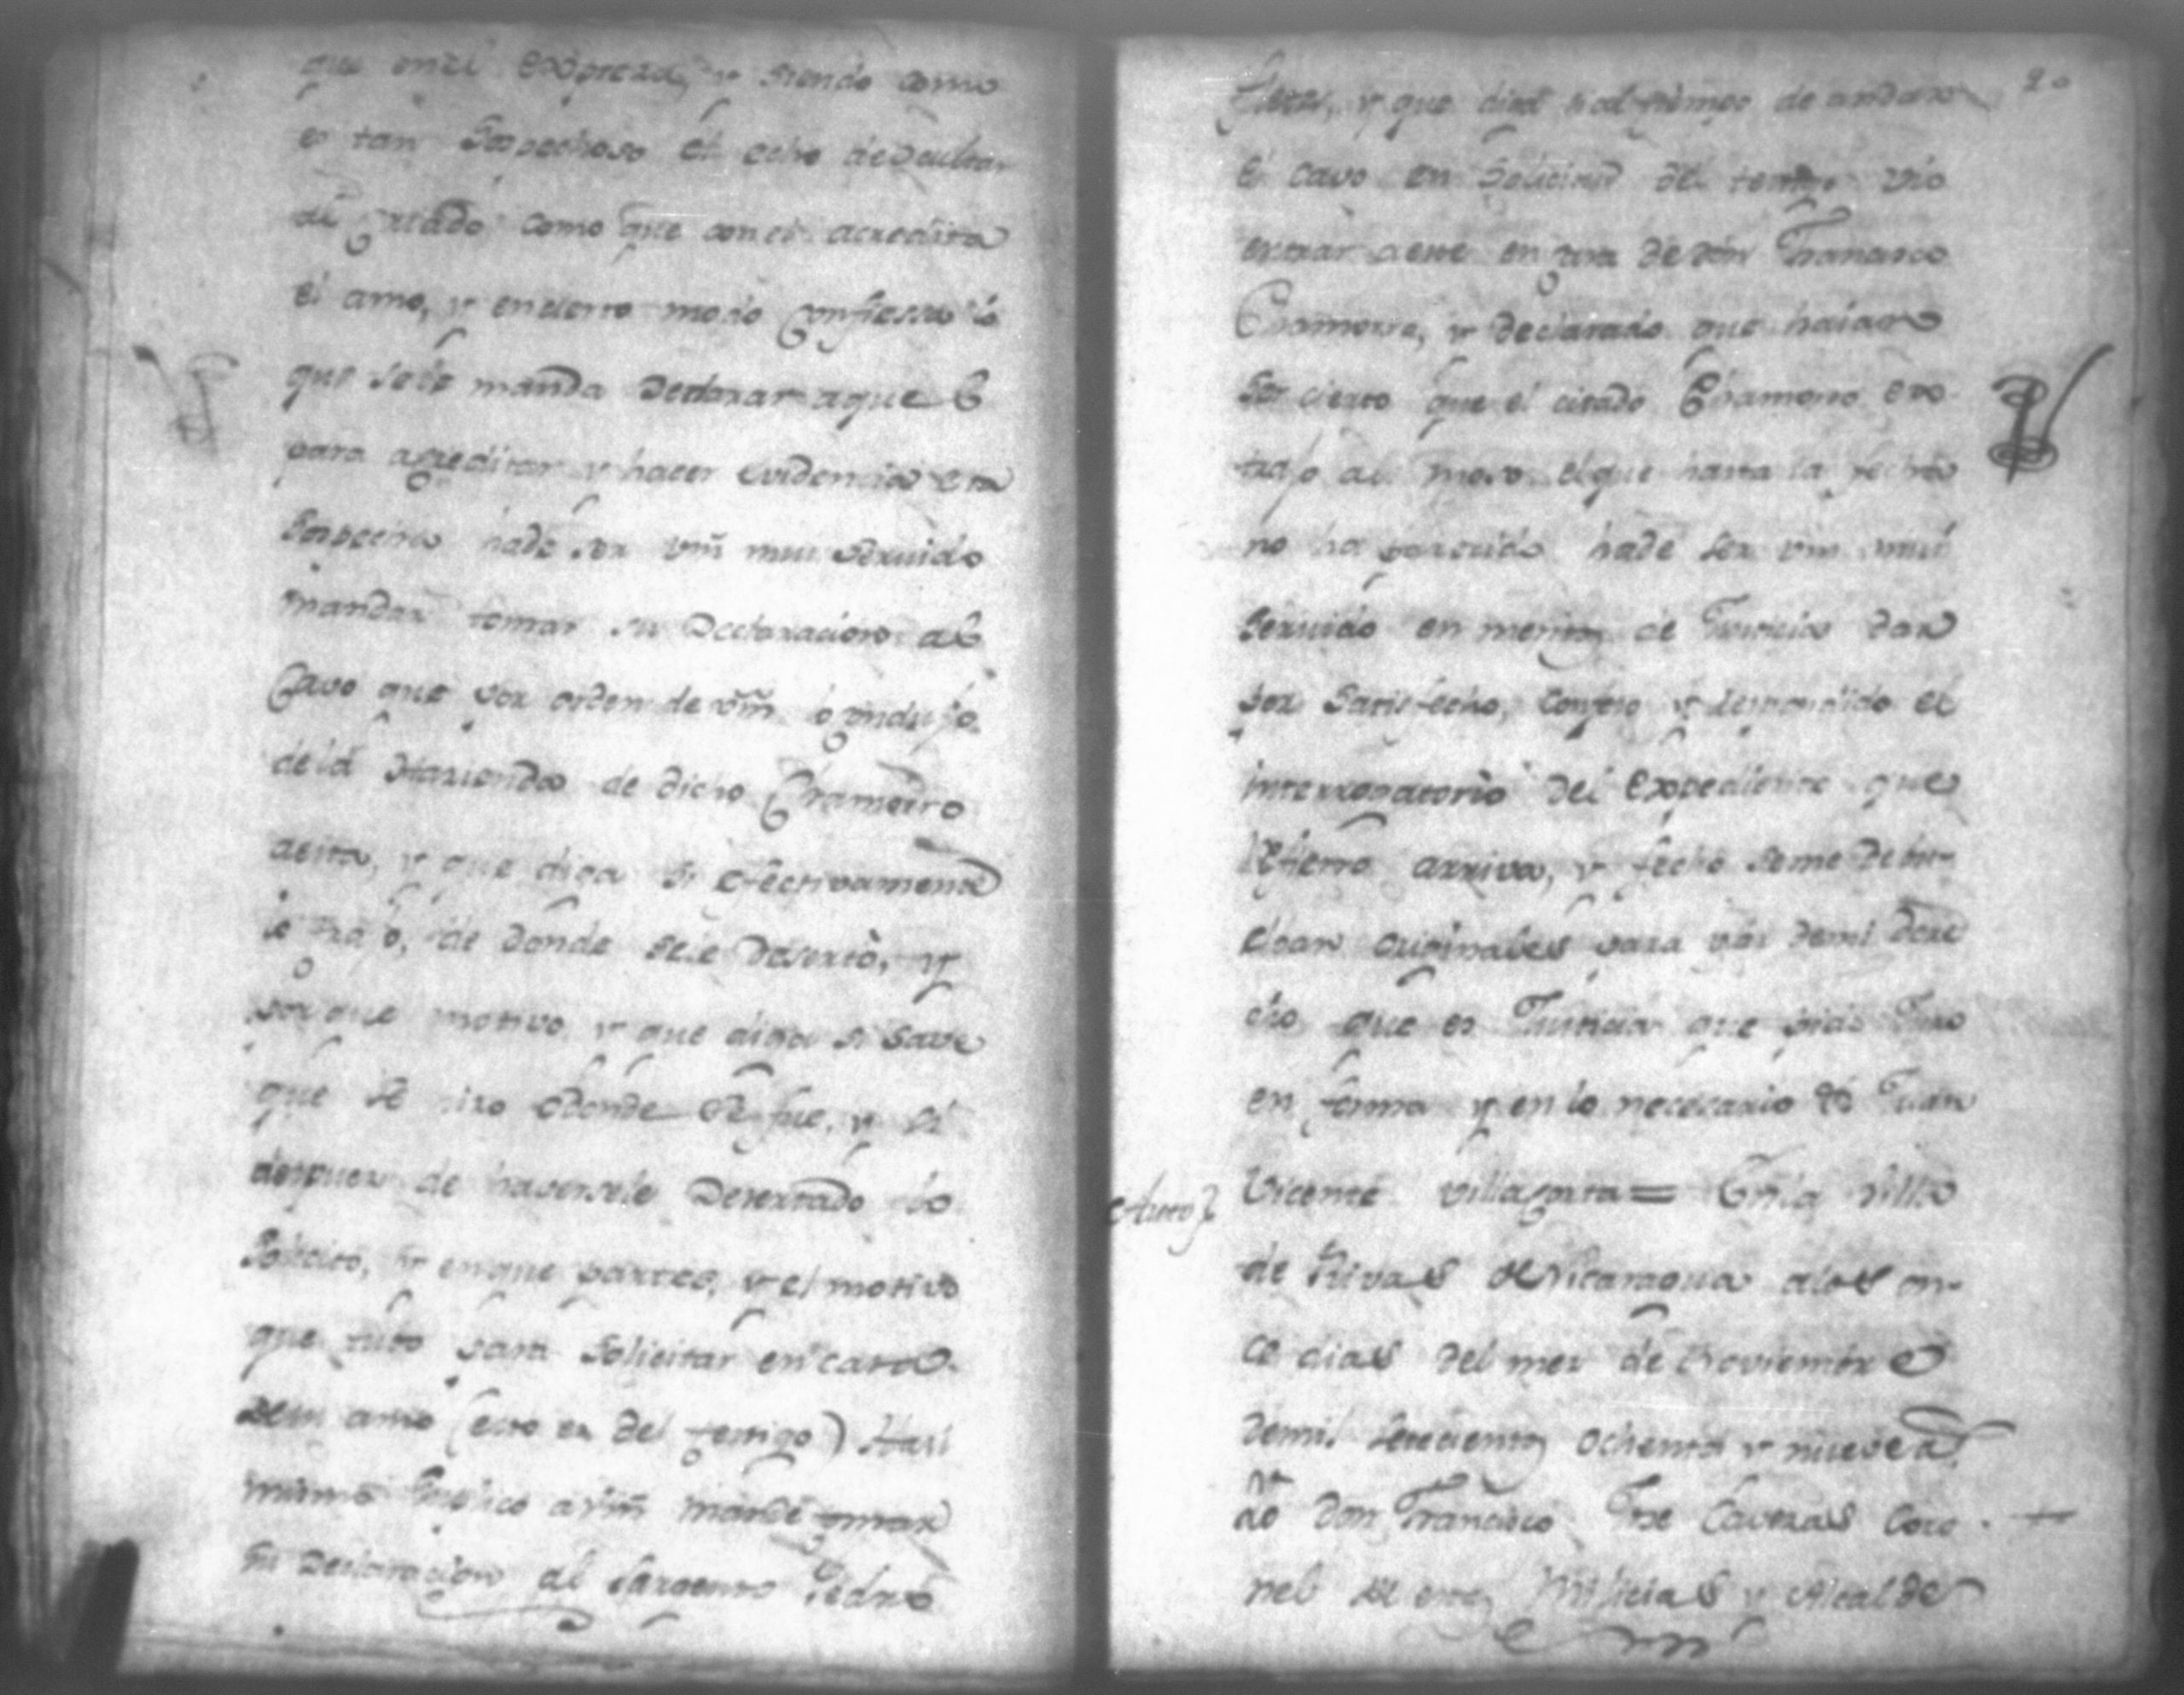 que en el expresa, y siendo como
es tan Sospechoso el echo de Ocultar
el criado como que con el acredita
el amo, y en cierto modo Confiessa lo
que se le manda Declarar aque el
para acreditar y hacer evidencia esta
Sospecha hade ser vm̃ mui Servido
mandar tomar su Declaracion al
Cavo que por orden de vm̃ lo condujo
de la Hazienda de dicho Chamorro
aesta, y que diga si efectivamente
lo trajo, de donde se le Desertò, y
por que motivo, y que diga si Save
que se hizo o donde Se fue, y si
despues de haversele Desertado lo
Solicito, y en que partes, y el motivo
que tubo para Solicitar en casa
de su amo (esto es del testigo) Assi
mismo Suplico a vm̃ mande tomar
su Declaracion al Sargento Pedro
20
y que diga si al tiempo de andar
el cavo en Solicitud del testigo vio
entrar a este en casa de Don Francisco
Chamorro, y declarado que haian
Ser cierto que el citado Chamorro
trajo al moso el que hasta la fecha
no ha parecido hade ser vm̃ mui
Servido en meritos de Justicia dar
por Satisfecho, y respondido el
interrogatorio del Expediente que
refiero arriva, y fecho seme debu-
elvan originales para usar demi Dere
cho que es Justicia que pido Juro
en forma y en lo necesario &ª Juan
Autto} Vicente Villagarta = En la villa
de Rivas de Nicaragua alos on-
ce dias del mes de Noviembre
demil Setecientos ochenta y nueve a.
Don Francisco Jose Caveras Coro
nel de estas Milicias y Alcalde